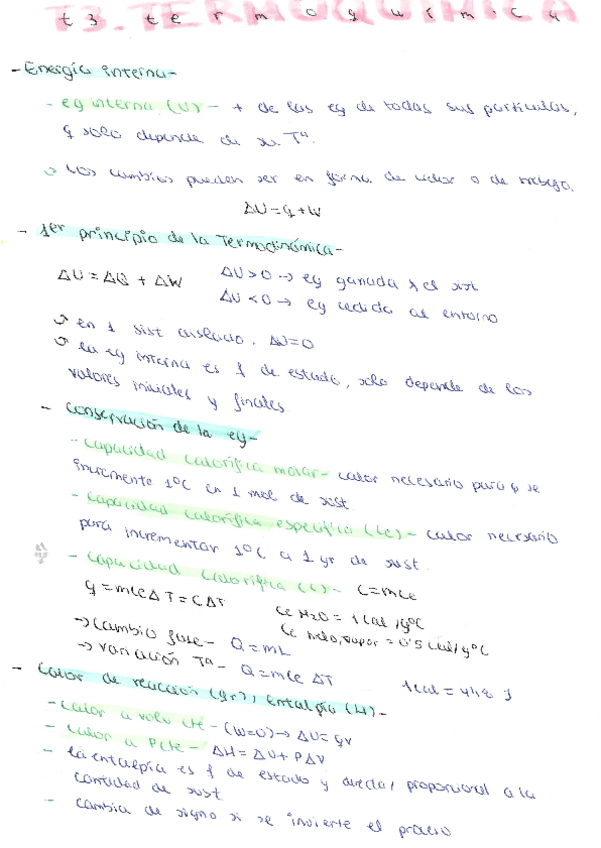 T3. TERMOQUÍMICA
t3 termoquímica
- Energía interna -
- eg interna (U) - + de las eg de todas sus partículas,
q solo depende de su Tª.
→ Los cambios pueden ser en forma de calor o de trabajo.
ΔU = q + W
- 1er principio de la Termodinámica -
ΔU = ΔQ + ΔW ΔU > 0 → eg ganada x el sist
ΔU < 0 → eg cedida al entorno
→ en 1 sist aislado, ΔU = 0
→ la eg interna es f de estado, solo depende de los
valores iniciales y finales
- Conservación de la eg -
- Capacidad calorífica molar - calor necesario para q se
incremente 1ºC en 1 mol de sust.
- Capacidad calorífica específica (Ce) - calor necesario
para incrementar 1ºC a 1 gr de sust.
- Capacidad calorífica (C) - C = mCe
q = mCe ΔT = CΔT Ce H2O = 1 cal/gºC
Ce hielo, vapor = 0'5 cal/gºC
→ Cambio fase - Q = mL
→ Variación Tª - Q = mCe ΔT 1 cal = 4'18 J
- Calor de reacción (qr), Entalpía (H) -
- Calor a volu cte - (W=0) → ΔU = qv
- Calor a P cte - ΔH = ΔU + PΔV
- la entalpía es f de estado y directa/ proporcional a la
cantidad de sust
- cambia de signo si se invierte el proceso